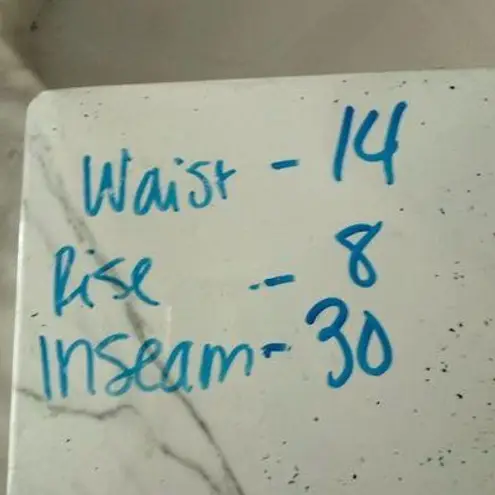 Waist - 14
Rise - 8
Inseam - 30